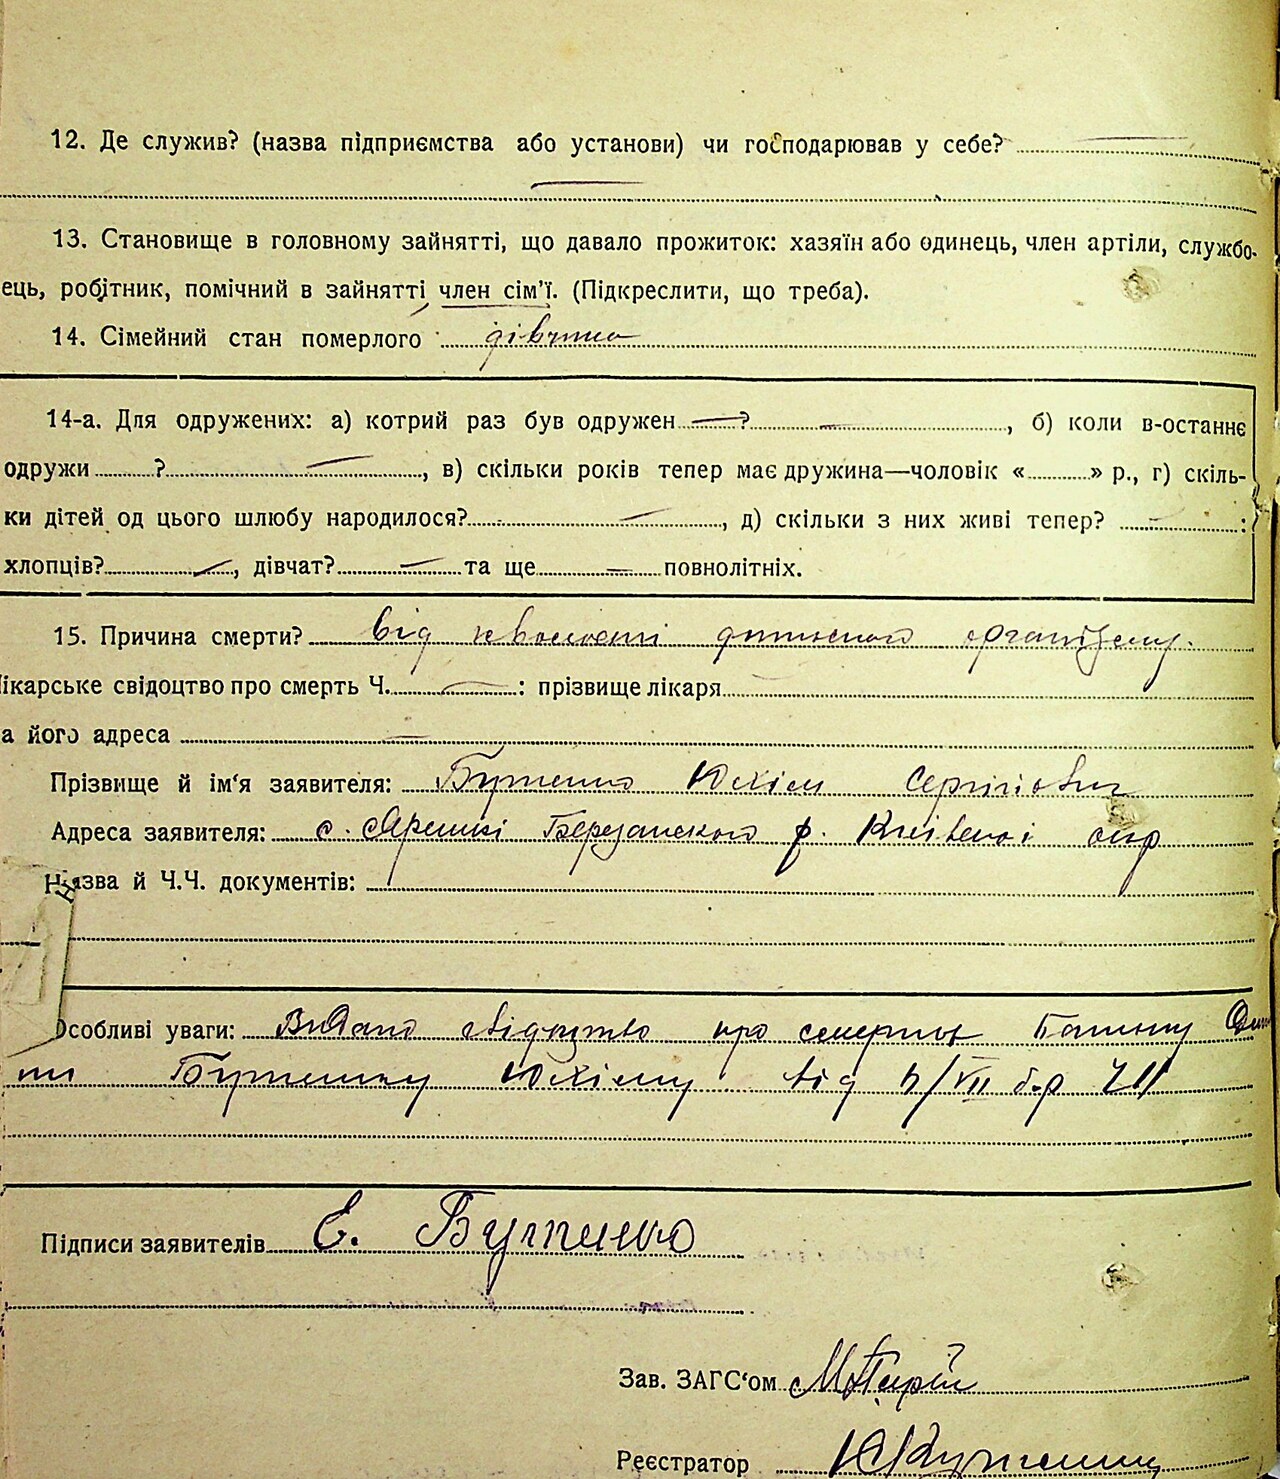 12. Де служив? (назва підприємства або установи) чи господарював у себе?
13. Становище в головному зайнятті, що давало прожиток: хазяїн або одинець, член артіли, службо-
ець, робітник, помічний в зайнятті член сім'ї. (Підкреслити, що треба).
14. Сімейний стан померлого дівчина
14-а. Для одружених: а) котрий раз був одружен ? , б) коли в-останнє
одружи ? , в) скільки років тепер має дружина—чоловік « » р., г) скіль-
ки дітей од цього шлюбу народилося? , д) скільки з них живі тепер? :
хлопців? , дівчат? та ще повнолітніх.
15. Причина смерти? від кволості дитячого організму.
лікарське свідоцтво про смерть Ч. : прізвище лікаря
а його адреса
Прізвище й ім‘я заявителя: Бутенко Юхім Сергійович
Адреса заявителя: с. Ярешки Березанского р. Київської обр
Назва й Ч.Ч. документів:
Особливі уваги: Видано свідоцтво про смерть
Бутенку Юхіму від /VII б-р
Підписи заявителів Є. Бутенко
Зав. ЗАГС‘ом
Реєстратор